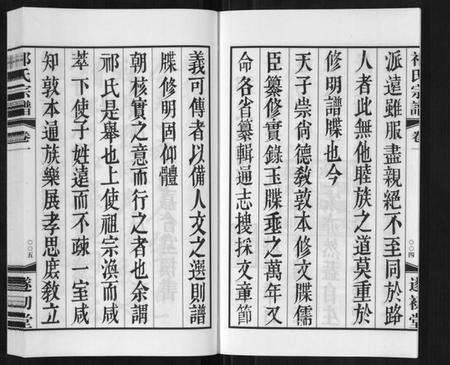 祁氏宗譜
卷一
〇〇四
遂初堂
派遠雖服盡親絕不至同於路
人者此無他睦族之道莫重於
修明譜牒也今
天子崇尚德教敦本修文牒儒
臣纂修實錄玉牒垂之萬年又
命各省纂輯通志搜採文章節
義可傳者以備人文之選則譜
牒修明固仰體
朝核實之意而行之者也余謂
祁氏是舉也上使祖宗渙而咸
萃下使子姓遠而不疎一室咸
知敦本通族樂展孝思庶教立
祁氏宗譜
卷一
〇〇五
遂初堂